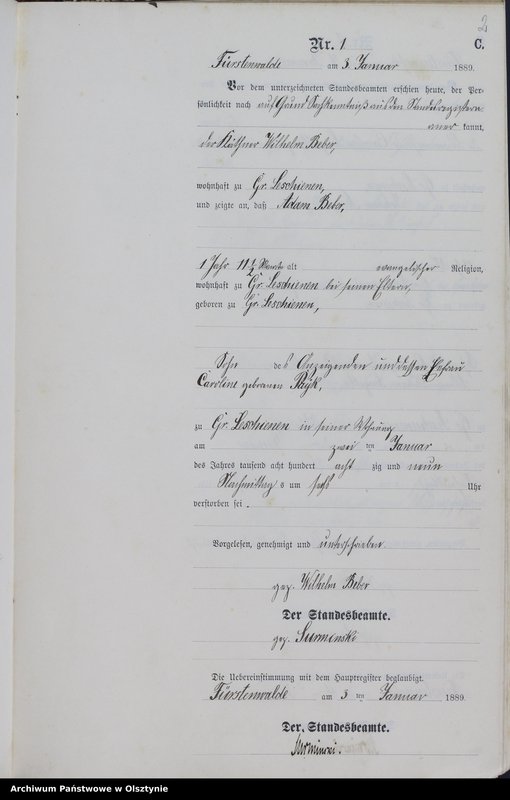 2
Nr. 1
C.
Fürstenwalde am 3. Januar 1889.
Vor dem unterzeichneten Standesbeamten erschien heute, der Per-
sönlichkeit nach auf Grund Sachkenntniß aus den Standesregistern
kannt,
der Käthner Wilhelm Beber,
wohnhaft zu Gr. Leschienen,
und zeigte an, daß Adam Beber,
1 Jahr 11½ Monate alt evangelischer Religion,
wohnhaft zu Gr. Leschienen bei seinen Eltern,
geboren zu Gr. Leschienen,
Sohn des Anzeigenden und dessen Ehefrau
Caroline geborenen Payk,
zu Gr. Leschienen in seiner Wohnung
am zwei ten Januar
des Jahres tausend acht hundert acht zig und neun
Nachmittag s um sechs Uhr
verstorben sei.
Vorgelesen, genehmigt und unterschrieben.
gez. Wilhelm Beber
Der Standesbeamte.
gez. Surminski
Die Uebereinstimmung mit dem Hauptregister beglaubigt.
Fürstenwalde am 3 ten Januar 1889.
Der Standesbeamte.
Surminski.
Archiwum Państwowe w Olsztynie